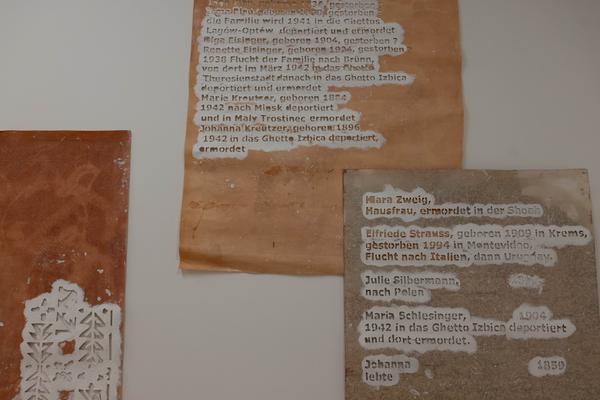 die Familie wird 1941 in die Ghettos
Lagów-Optów deportiert und ermordet
Olga Eisinger, geboren 1904, gestorben ?
Renette Eisinger, geboren 1924, gestorben
1938 Flucht der Familie nach Brünn,
von dort im März 1942 in das Ghetto
Theresienstadt danach in das Ghetto Izbica
deportiert und ermordet
Marie Kreutzer, geboren 1884
1942 nach Minsk deportiert
und in Maly Trostinec ermordet
Johanna Kreutzer, geboren 1896
1942 in das Ghetto Izbica deportiert,
ermordet
Klara Zweig,
Hausfrau, ermordet in der Shoah
Elfriede Strauss, geboren 1909 in Krems,
gestorben 1994 in Montevideo,
Flucht nach Italien, dann Uruguay.
Julie Silbermann,
nach Polen
Maria Schlesinger, 1904
1942 in das Ghetto Izbica deportiert
und dort ermordet.
Johanna 1859
lebte